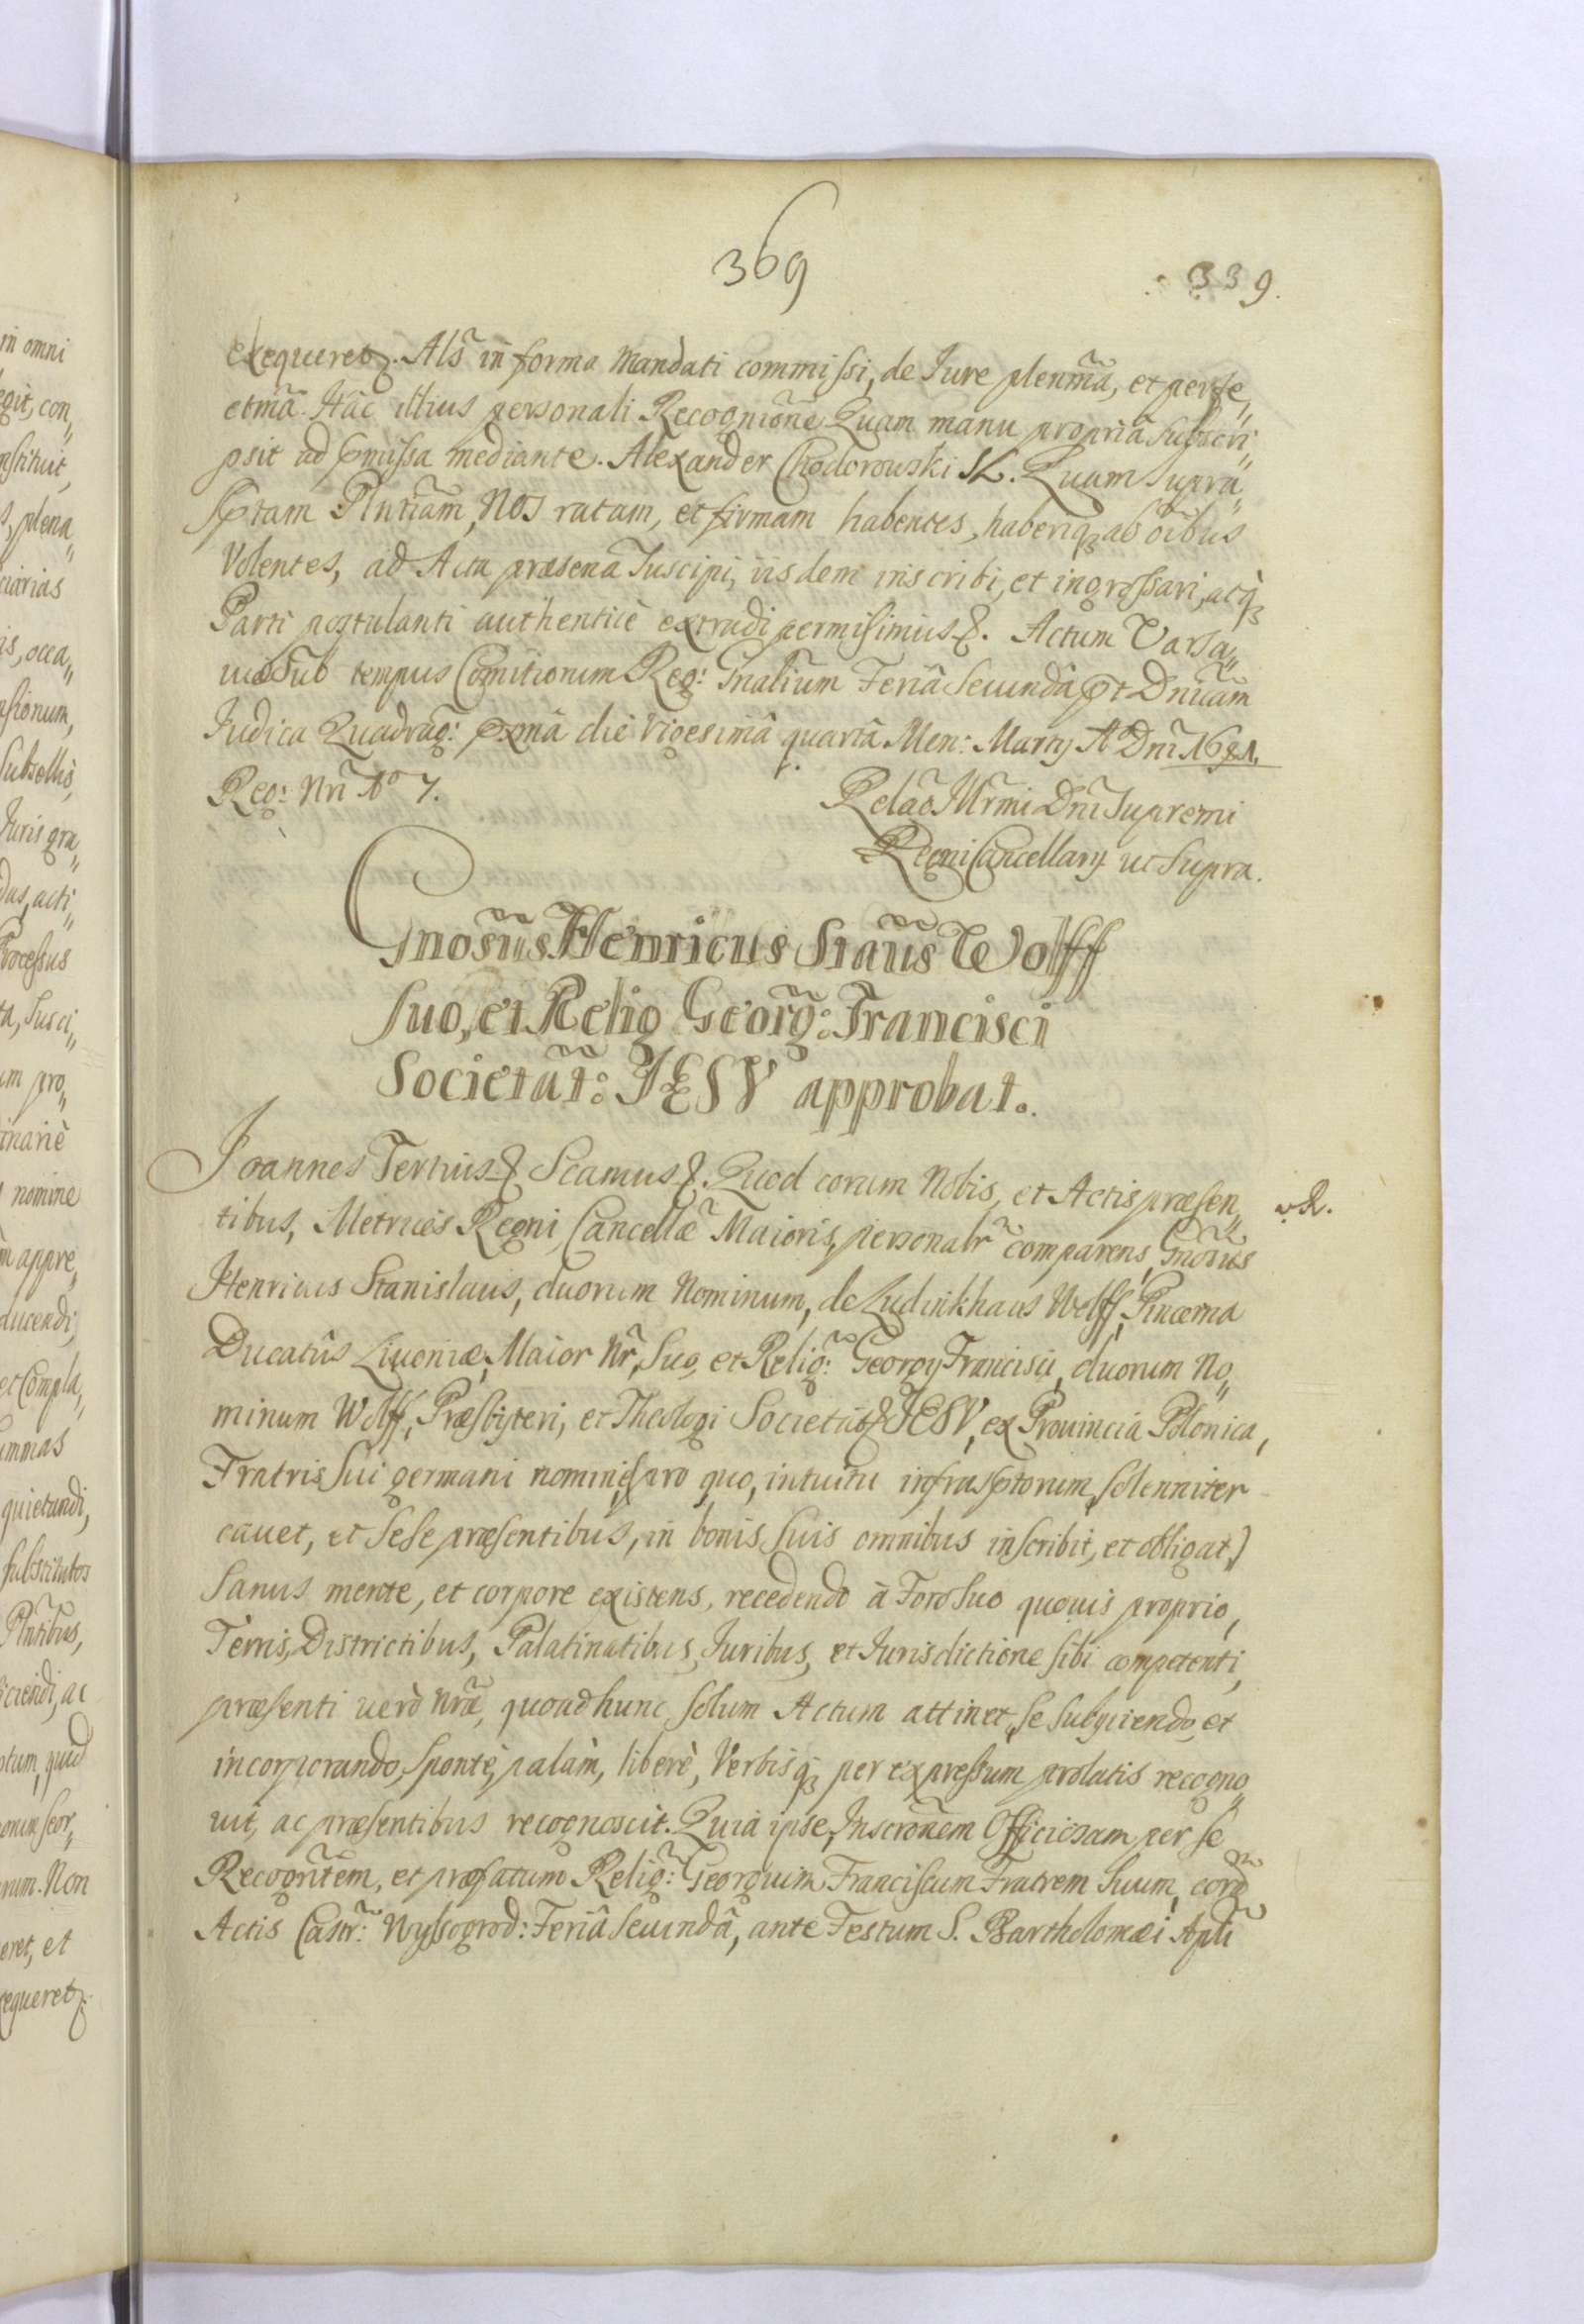 369
339.
exequeret. Als̃ in forma Mandati commissi, de Iure plenm̃a, et perfe„
ctm̃a. Hac illius personali Recogni͠one Quam manu propria subscri„
psit ad p̱missa mediante. Alexander Chodorowski SK. Quam supra„
sp̱tam Pln̄tiam, Nos ratam, et firmam habentes, haberiq̨ ab oĩbus
Volentes, ad Acta præsena suscipi, iisdem inscribi, et ingrossari, atq̨
Parti postulanti authenticè extradi permisimus &. Actum Varsa„
uiæ sub tempus Comitiorum Reg: Gnalĩum Feriâ Secundâ p̱t Dnĩcam
Iudica Quadrag: p̱xmâ die Vigesimâ quartâ Men: Martij Aº Dnĩ 1681.
Reg: Nrĩ Aº 7.
Relãõ Illr̃mi Dnĩ Supremi
Regni Cancellarij ut supra.
Gnosũs Henricus Staũs Wolff
suo, et Relig Georg̃: Francisci
Societãt: IESV approbat.
Ioannes Tertius & Scamus &. Quod coram Nobis, et Actis præsen„
tibus, Metrices Regni, Cancellæ Maioris, personalr̃ comparens, Gnosũs
Henricus Stanislaus, duorum Nominum, de Ludinkhaus Wolff, Pincerna
Ducatûs Liuoniæ, Maior Nr̃, suo, et Relig̃: Georgij Francisci, duorum No„
minum Wolff, Præsbyteri, et Theologi Societãt IESV, ex Prouincia Polonica,
Fratris sui germani nomine, (pro quo, intuitu infrasp̱torum, solenniter
cauet, et sese præsentibus, in bonis suis omnibus inscribit, et obligat,)
Sanus mente, et corpore existens, recedendo à Foro suo quouis proprio,
Terris, Districtibus, Palatinatibus, Iuribus, et Iurisdictione sibi competenti,
præsenti uerò Nrãe, quoad hunc solum Actum attinet, se subijciendo, et
incorporando, spontè, palàm, liberè, Verbisq̨ per expressum prolatis recogno„
uit, ac præsentibus recognoscit. Quia ipse, Inscr̃onem Officiosam per se
Recogn̄tem, et præfatum Relig̃: Georgium Franciscum Fratrem suum, corã
Actis Castr̃: Wyssogrod: Feriâ Secundâ, ante Festum S. Bartholomæi Aplĩ